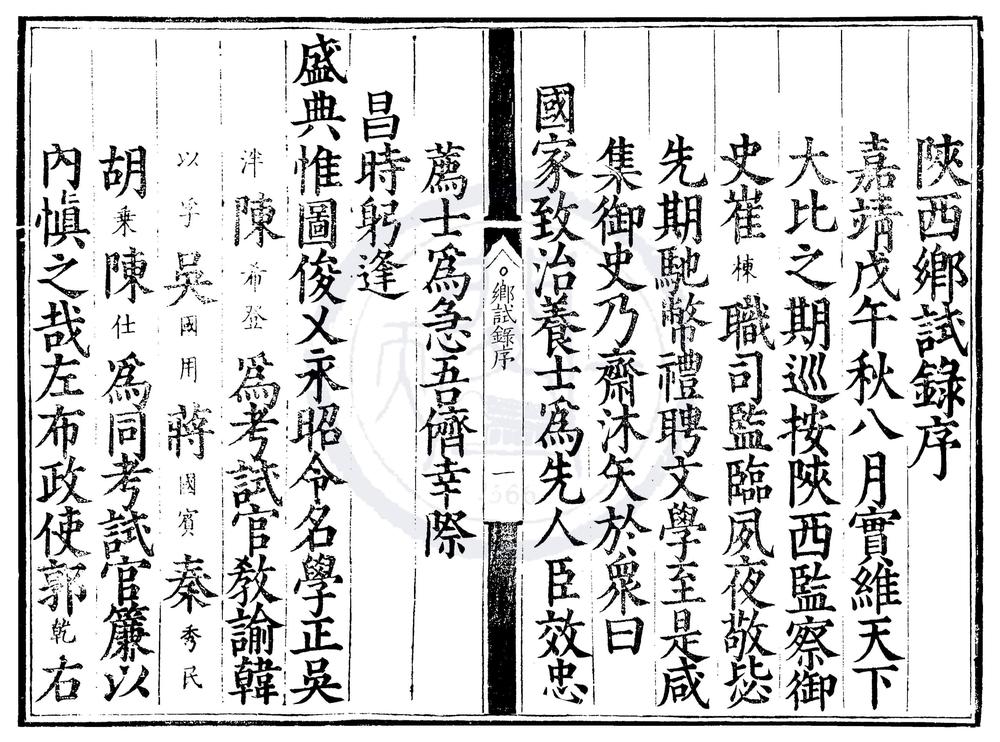 陝西鄉試錄序
嘉靖戊午秋八月實維天下
大比之期巡按陝西監察御
史崔棟職司監臨夙夜敬毖
先期馳幣禮聘文學至是咸
集御史乃齋沐矢於衆曰
國家致治養士爲先人臣效忠
鄉試錄序
一
薦士爲急吾儕幸際
昌時躬逢
盛典惟圖俊乂永昭令名學正吳
泮陳希登爲考試官教諭韓
以孚吳國用蔣國賓秦秀民
胡乗陳仕爲同考試官簾以
內慎之哉左布政使郭乾右